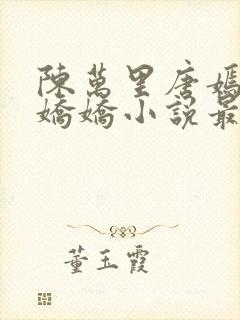 陳萬里唐嫣
嬌嬌小說最
董玉霞